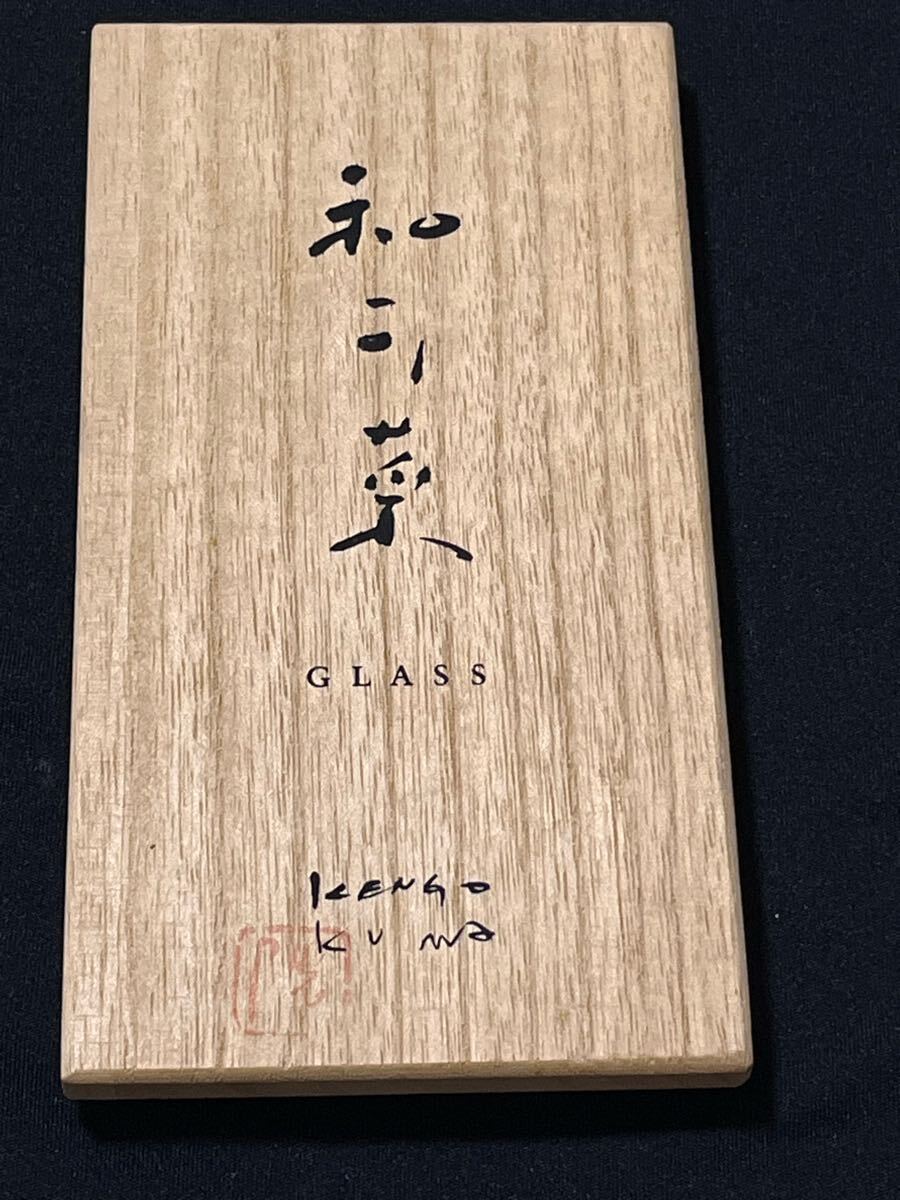 和可菜
GLASS
KENGO
KUMA